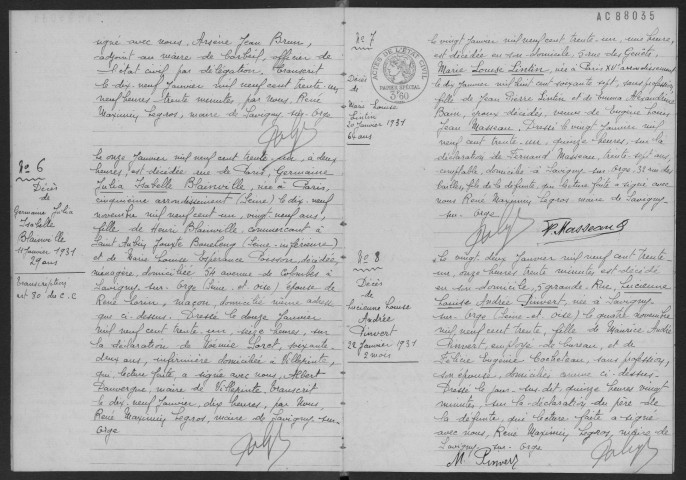 signé avec nous, Arsène Jean Brun,
adjoint au maire de Corbeil, officier de
l'état civil par délégation. Transcrit
le dix neuf Janvier mil neuf cent trente un
neuf heures trente minutes, par nous, René
Maximin Legros, maire de Savigny-sur-Orge
N° 6
Décès
de
Germaine Julia
Isabelle
Blainville
11 Janvier 1931
29 ans
transcription
art 80 du C.C
Le onze Janvier mil neuf cent trente un, à deux
heures, est décédée rue de Paris, Germaine
Julia Isabelle Blainville, née à Paris,
cinquième arrondissement (Seine) le dix-neuf
novembre mil neuf cent un, vingt neuf ans,
fille de Henri Blainville, commerçant à
Saint Aubin Jouxte Boulleng (Seine-inférieure)
et de Marie Louise Espérance décédée,
ménagère, domiciliée 54 avenue de
Savigny-sur-Orge (Seine et Oise) épouse de
René, maçon, domicilié même adresse
que ci-dessus. Dressé le douze Janvier
mil neuf cent trente-un, seize heures, sur
la déclaration de, soixante
deux ans, infirmière domiciliée à Villepinte,
qui, lecture faite, a signé avec nous, Albert
Dauvergne, maire de Villepinte. Transcrit
le dix-neuf Janvier, dix heures, par Nous
René Maximin Legros, maire de Savigny-sur-
Orge
AC88035
N° 7
Décès
de
Marie Louise
Lintin
20 Janvier 1931
64 ans
ACTES DE L'ETAT CIVIL
PAPIER SPÉCIAL
3f60
Le vingt Janvier mil neuf cent trente-un, une heure,
est décédée en son domicile, 5 rue des Genêts,
Marie-Louise Lintin, née à Paris XVe arrondissement
le dix Janvier mil huit cent soixante sept, sans profession,
fille de Jean Pierre Lintin et de Emma Alexandrine
époux décédés, veuve de Eugène Louis
Jean Masseau. Dressé le vingt Janvier mil
neuf cent trente-un, quinze heures, sur la
déclaration de Fernand Masseau, trente sept ans,
comptable, domicilié à Savigny-sur-Orge, 33 rue des
fils de la défunte, qui lecture faite a signé avec
nous René Maximin Legros, maire de Savigny-
sur-Orge
F. Masseau
N° 8
Décès
de
Lucienne Louise
Andrée
Pinvert
22 Janvier 1931
2 mois
Le vingt deux Janvier mil neuf cent trente
un, onze heures trente minutes est décédée
en son domicile, 5 grande Rue, Lucienne
Louise Andrée Pinvert, née à Savigny-
sur-Orge (Seine et Oise) le quatre novembre
mil neuf cent trente, fille de Maurice André
Pinvert, employé de bureau, et de
Eugénie Corbeleau, sans profession,
son épouse, domiciliés comme ci-dessus.
Dressé le jour sus dit quinze heures vingt
minutes, sur la déclaration du père de
la défunte qui lecture faite a signé
avec nous, René Maximin Legros, maire de
Savigny-sur-Orge
M. Pinvert